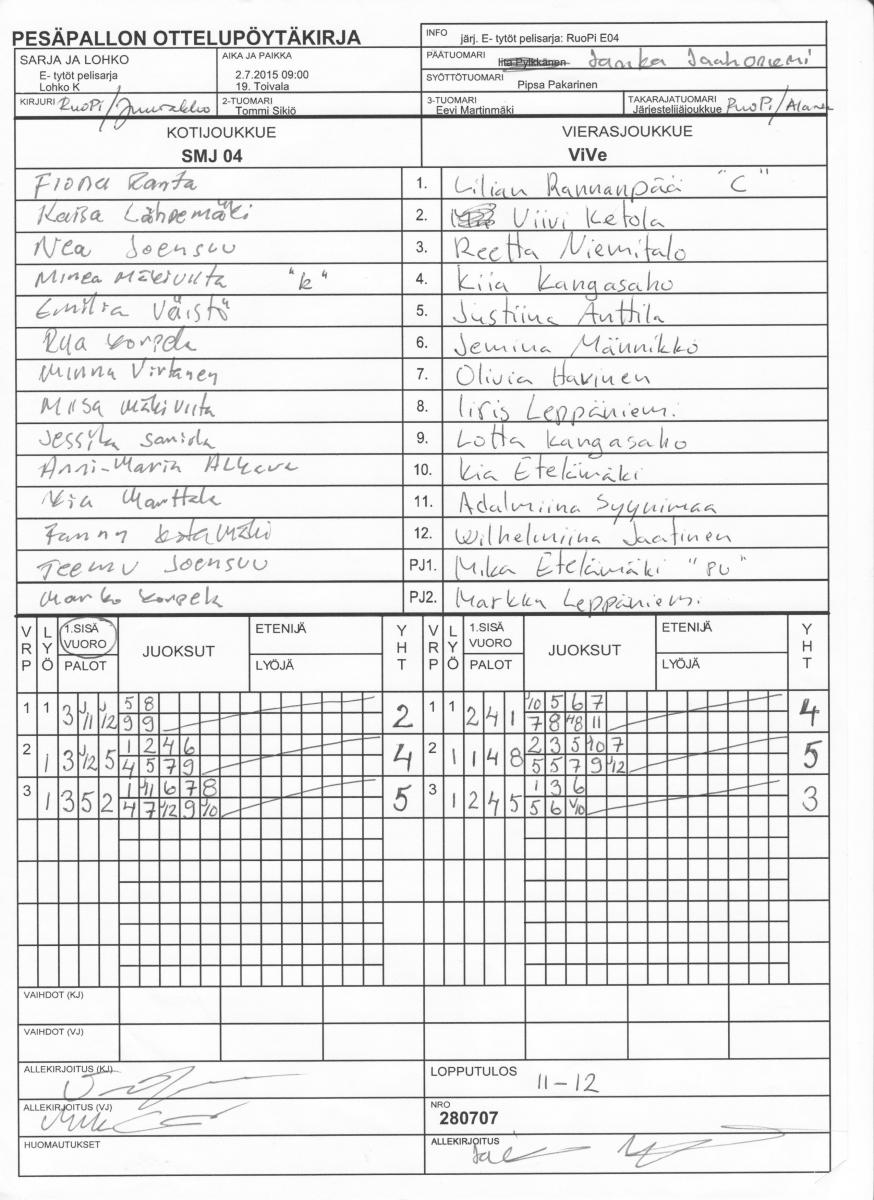 PESÄPALLON OTTELUPÖYTÄKIRJA
INFO järj. E- tytöt pelisarja: RuoPi E04
SARJA JA LOHKO
E- tytöt pelisarja
Lohko K
AIKA JA PAIKKA
2.7.2015 09:00
19. Toivala
PÄÄTUOMARI
Iita Pylkkänen
SYÖTTÖTUOMARI
Pipsa Pakarinen
KIRJURI RuoPi/
2-TUOMARI
Tommi Sikiö
3-TUOMARI
Eevi Martinmäki
TAKARAJATUOMARI
Järjestelijäjoukkue RuoPi/Alanen
KOTIJOUKKUE
SMJ 04
VIERASJOUKKUE
ViVe
Fiona Ranta 1. Lilian Rannanpää "C"
Kaisa Lähdemäki 2. Viivi Ketola
Nea Joensuu 3. Reetta Niemitalo
Minea Mäkiviita "k" 4. Kiia Kangasaho
Emilia Väistö 5. Justiina Anttila
Korpela 6. Jemina Männikkö
Minna Virtanen 7. Olivia Havinen
Miisa Mäkiviita 8. Iiris Leppäniemi
9. Lotta Kangasaho
Anni-Maria 10. Kia Etelämäki
Marttala 11. Adalmiina Syynimaa
Fanny 12. Wilhelmiina Jaatinen
Teemu Joensuu PJ1. Mika Etelämäki "PV"
Marko Korpela PJ2. Markku Leppäniemi
VRP LYÖ 1.SISÄ VUORO PALOT JUOKSUT ETENIJÄ LYÖJÄ YHT VRP LYÖ 1.SISÄ VUORO PALOT JUOKSUT ETENIJÄ LYÖJÄ YHT
1 1 3 J/11 J/12 5 8 2 1 1 2 4 1 J/10 5 6 7 4
9 9 7 8 J/8 11
2 1 3 J/12 5 1 2 4 6 4 2 1 1 4 8 2 3 5 J/10 7 5
4 5 7 9 5 5 7 9 J/12
3 1 3 5 2 1 J/11 6 7 8 5 3 1 2 4 5 1 3 6 3
4 7 J/12 9 J/10 5 6 J/10
VAIHDOT (KJ)
VAIHDOT (VJ)
ALLEKIRJOITUS (KJ)
LOPPUTULOS
11-12
ALLEKIRJOITUS (VJ)
NRO
280707
HUOMAUTUKSET
ALLEKIRJOITUS